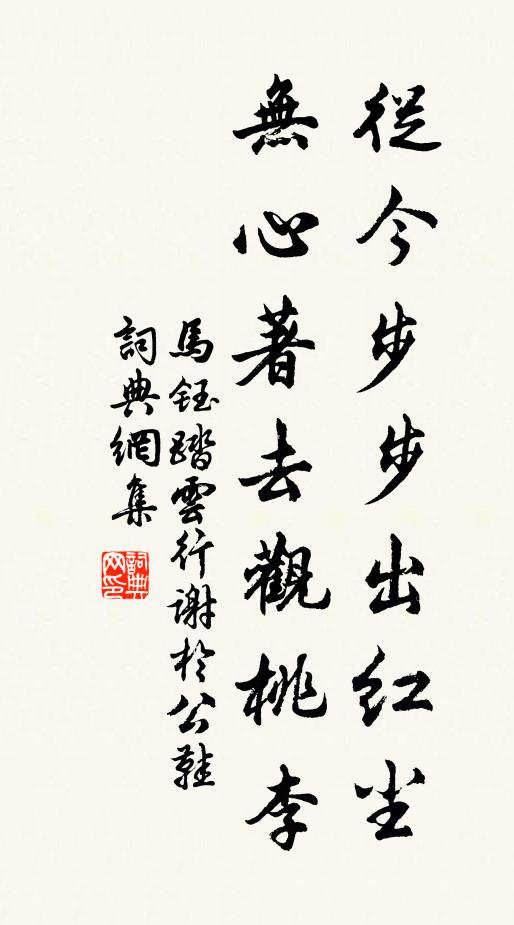 從今步步出红尘
無心著去觀桃李
馬鈺踏雲行謝於公鞋
詞典網集
詞典
网印